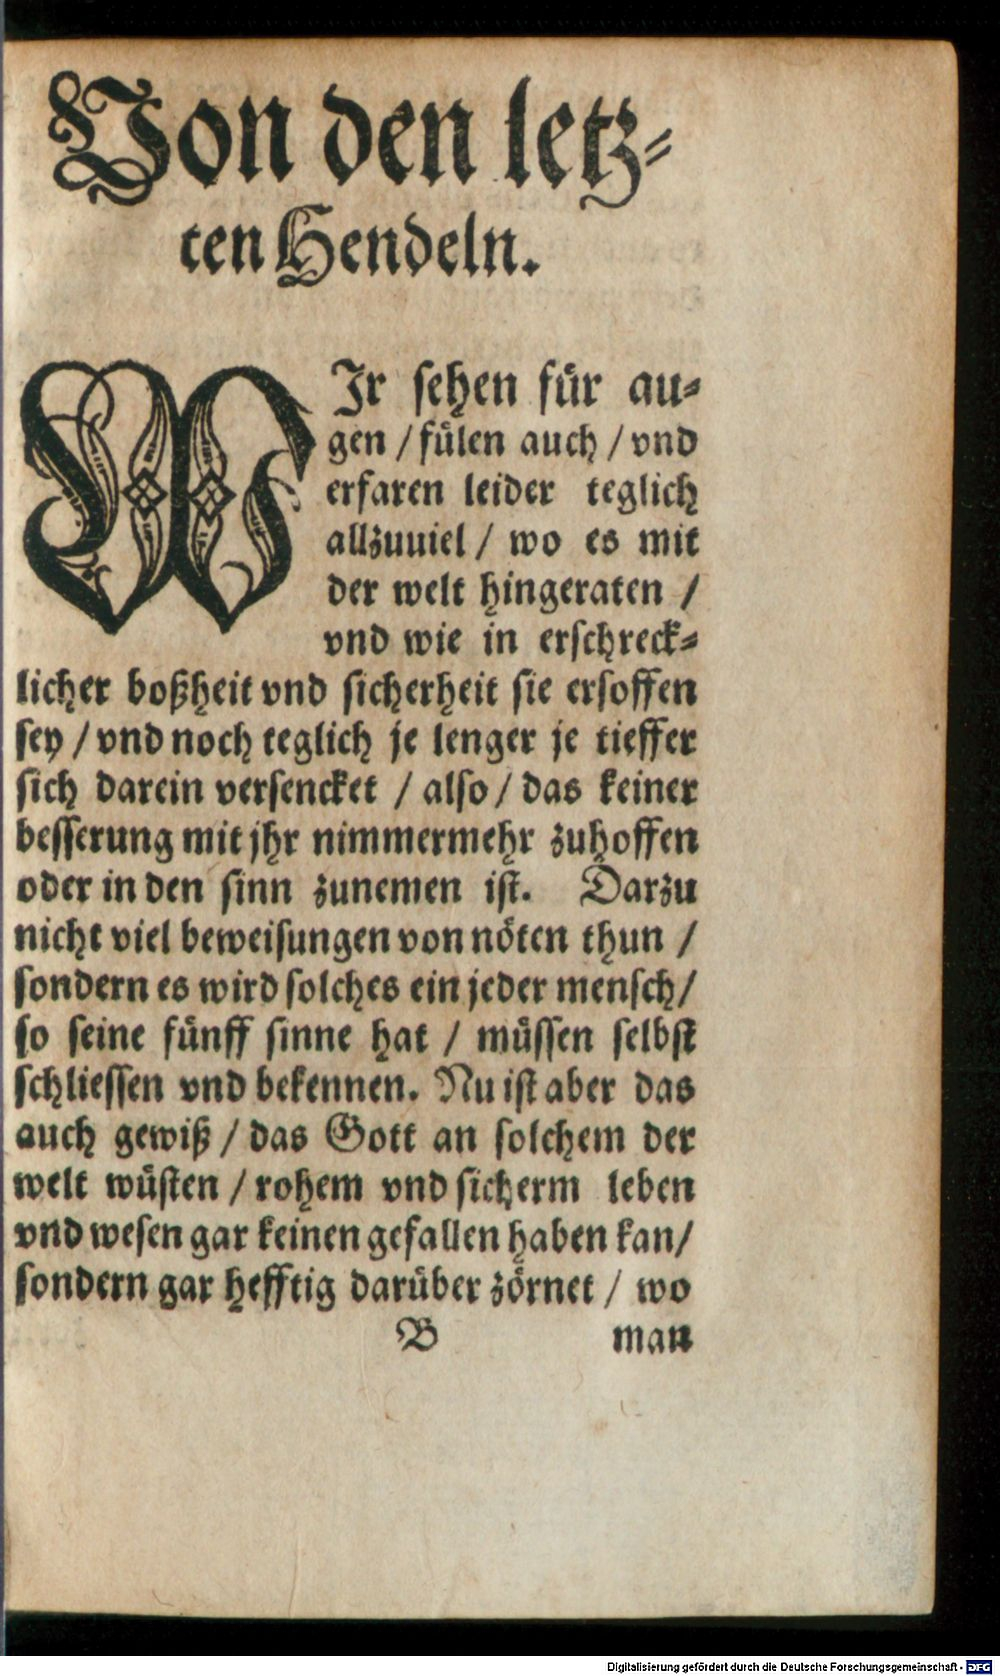 Von den letz-
ten Hendeln.
WIr sehen für au-
gen / fülen auch / vnd
erfaren leider teglich
allzuuiel / wo es mit
der welt hingeraten /
vnd wie in erschreck-
licher boßheit vnd sicherheit sie ersoffen
sey / vnd noch teglich je lenger je tieffer
sich darein versencket / also / das keiner
besserung mit jhr nimmermehr zuhoffen
oder in den sinn zunemen ist. Darzu
nicht viel beweisungen von nöten thun /
sondern es wird solches ein jeder mensch /
so seine fünff sinne hat / müssen selbst
schliessen vnd bekennen. Nu ist aber das
auch gewiß / das Gott an solchem der
welt wüsten / rohem vnd sicherm leben
vnd wesen gar keinen gefallen haben kan /
sondern gar hefftig darüber zörnet / wo
B man
Digitalisierung gefördert durch die Deutsche Forschungsgemeinschaft - DFG